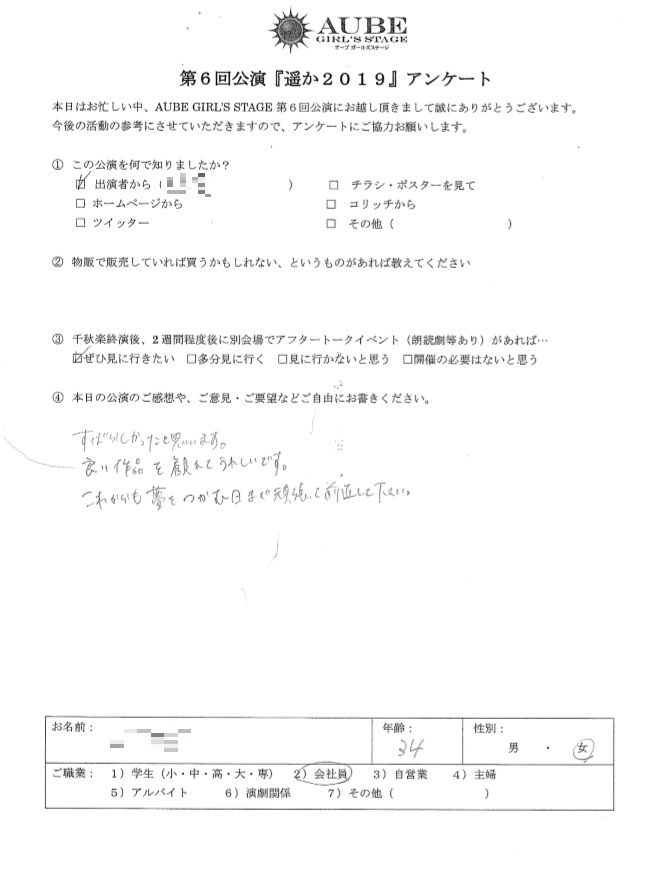 AUBE
GIRL'S STAGE
オーブ ガールズステージ
第６回公演『遥か２０１９』アンケート
本日はお忙しい中、AUBE GIRL'S STAGE 第６回公演にお越し頂きまして誠にありがとうございます。
今後の活動の参考にさせていただきますので、アンケートにご協力お願いします。
① この公演を何で知りましたか？
☑ 出演者から（ ） □ チラシ・ポスターを見て
□ ホームページから □ コリッチから
□ ツイッター □ その他（ ）
② 物販で販売していれば買うかもしれない、というものがあれば教えてください
③ 千秋楽終演後、２週間程度後に別会場でアフタートークイベント（朗読劇等あり）があれば…
☑ぜひ見に行きたい □多分見に行く □見に行かないと思う □開催の必要はないと思う
④ 本日の公演のご感想や、ご意見・ご要望などご自由にお書きください。
すばらしかったと思います。
良い作品を観れてうれしいです。
これからも夢をつかむ日まで頑張って前進して下さい。
お名前： 年齢： 性別：
34 男 ・ 女
ご職業： １）学生（小・中・高・大・専） ２）会社員 ３）自営業 ４）主婦
５）アルバイト ６）演劇関係 ７）その他（ ）